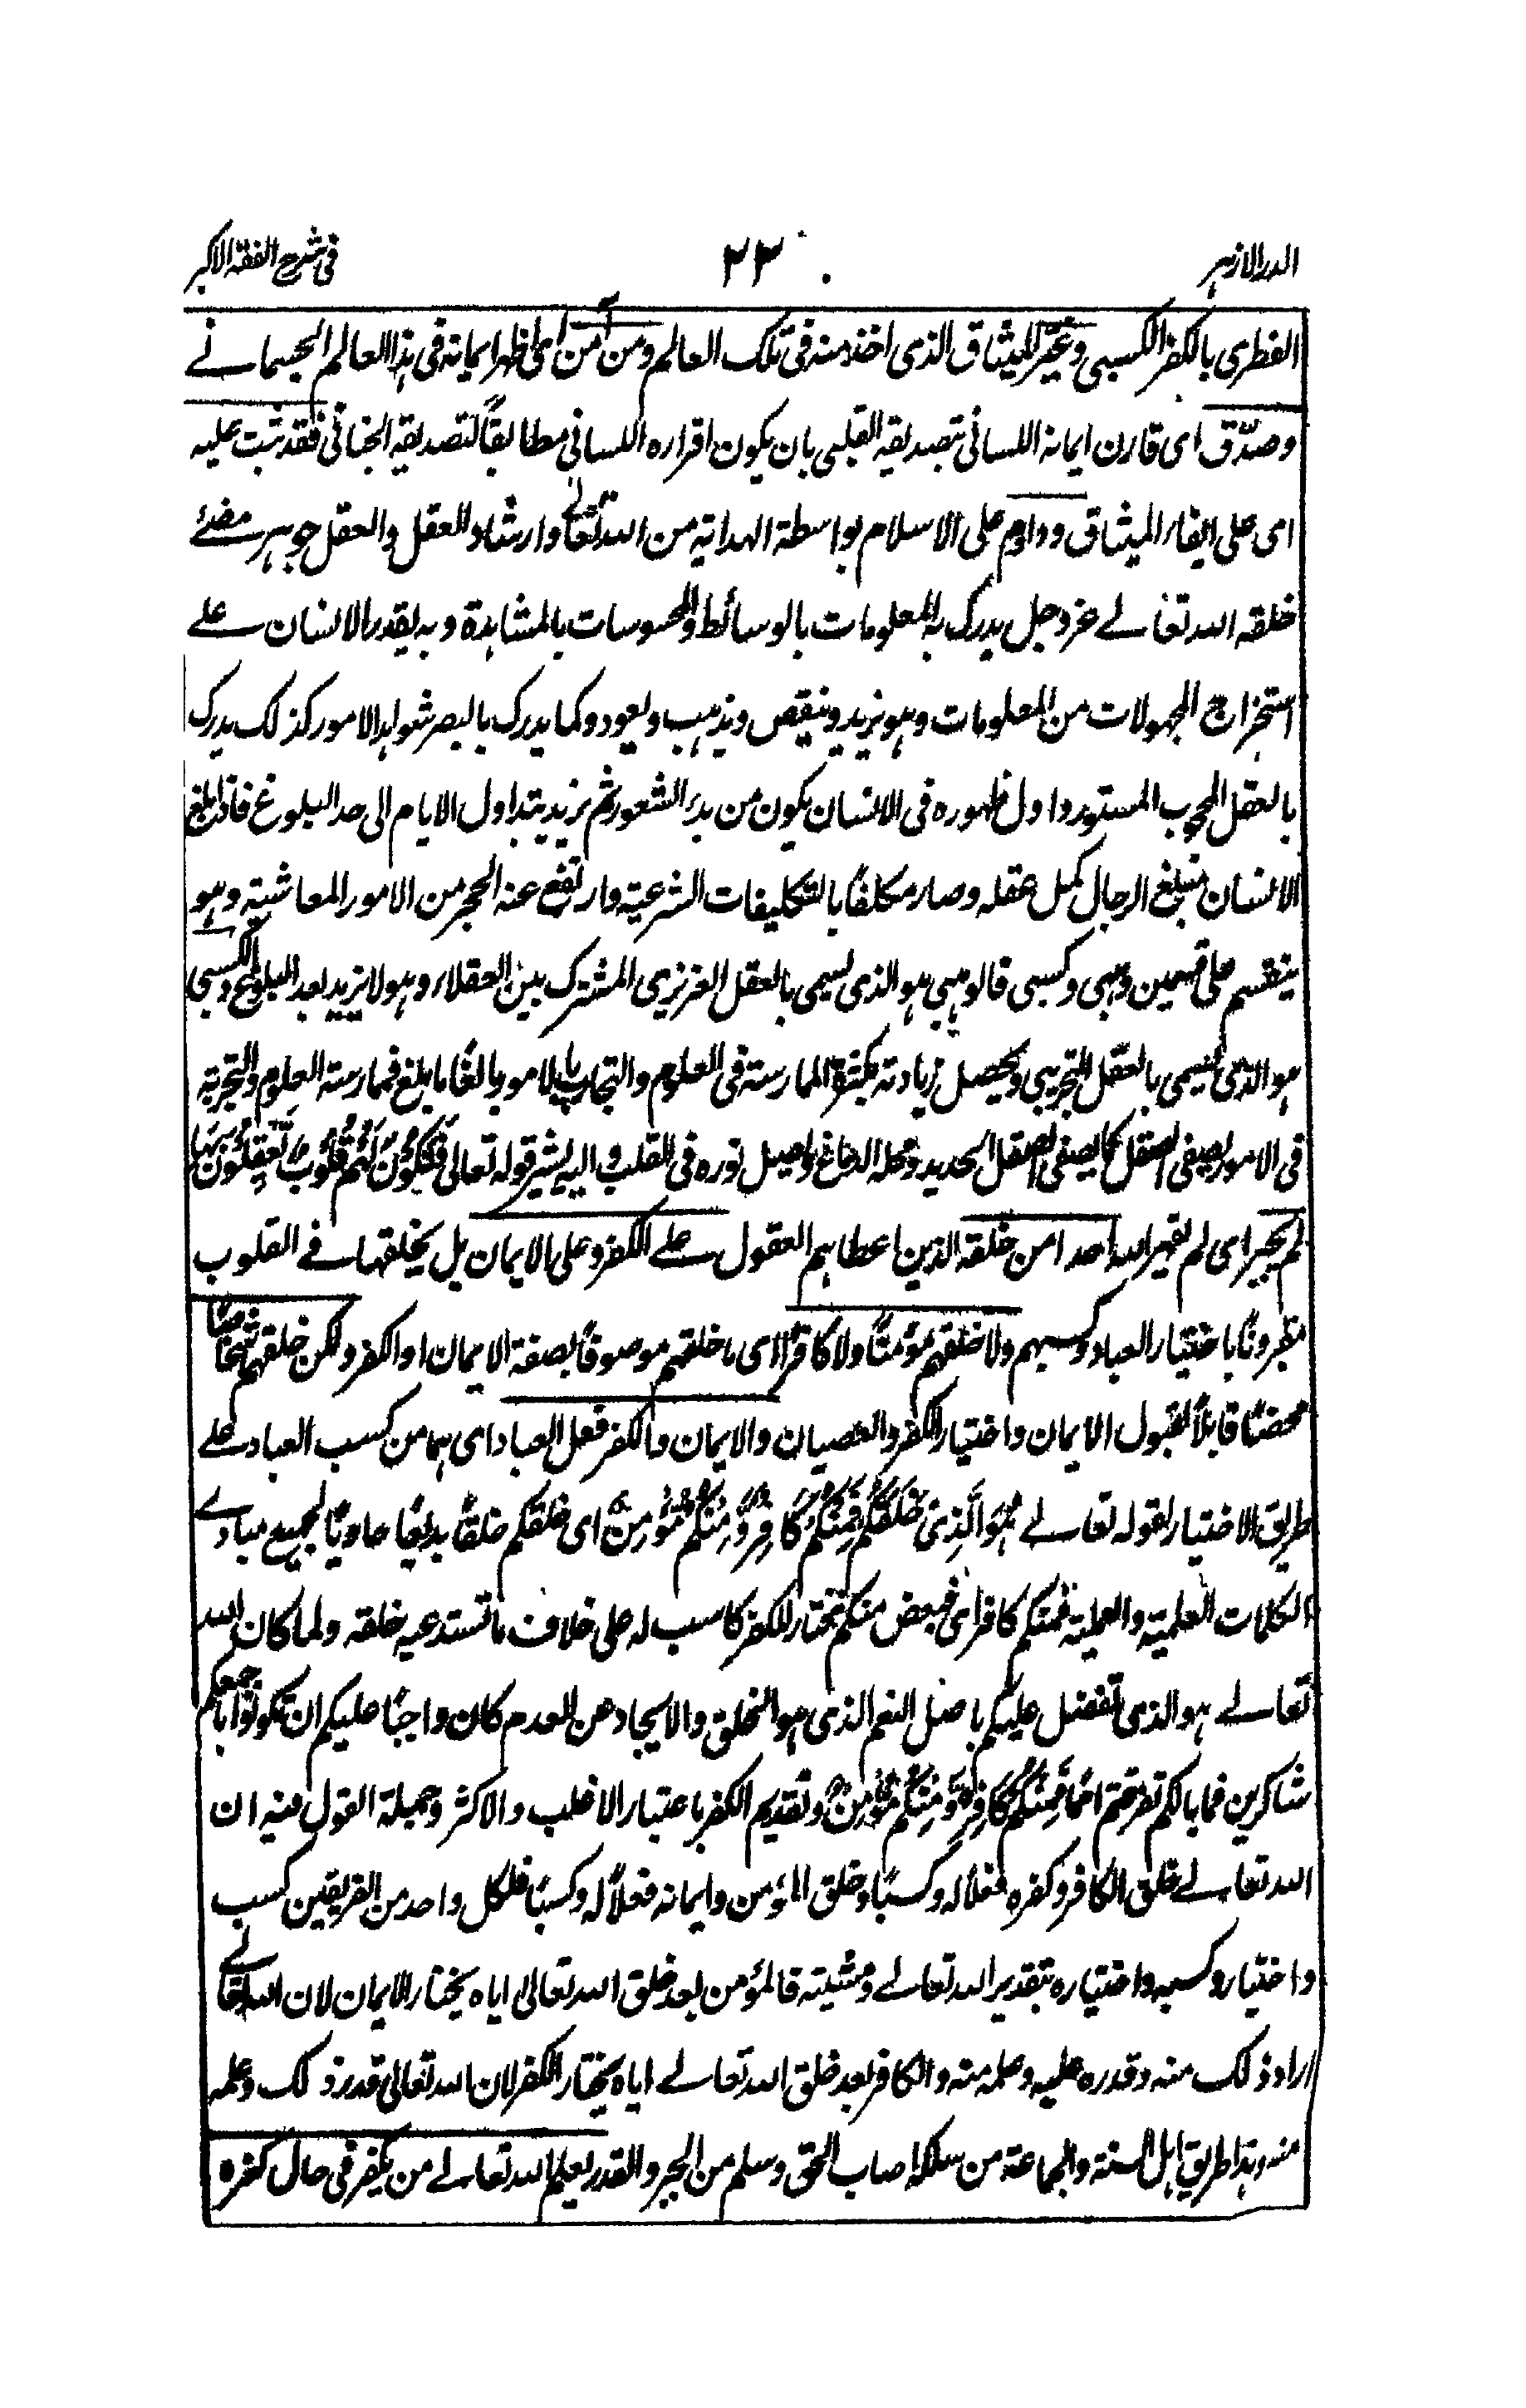 الدر الازهر ٢٣ فى شرح الفقه الاكبر
الفطرى بالكفر الكسبى وغيّر الميثاق الذى اخذ منه فى تلك العالم ومن آمن اى اظهر ايمانه فى هذا العالم الجسمانے
وصدّق اى قارن ايمانه اللسانى بتصديقه القلبى بان يكون اقراره اللسانى مطابقاً لتصديقه الجنانى فقد ثبت عليه
اى على ايفاء الميثاق وداوم على الاسلام بواسطة الهداية من الله تعالے وارشاد العقل والعقل جوهر مضئے
خلقه الله تعالے عز وجل يدرك به المعلومات بالوسائط والمحسوسات بالمشاهدة وبه يقدر الانسان علے
استخراج المجهولات من المعلومات وهو يزيد وينقص ويذهب ويعود وكما يدرك بالبصر شواهد الامور كذلك يدرك
بالعقل المحجوب المستور واول ظهوره فى الانسان يكون من بدء الشعور ثم يزيد بتداول الايام الى حد البلوغ فاذا بلغ
الانسان مبلغ الرجال كمل عقله وصار مكلفاً بالتكليفات الشرعية وارتفع عنه الحجر من الامور المعاشية وهو
ينقسم على قسمين وهبى وكسبى فالوهبى هو الذى يسمى بالعقل الغريزى المشترك بين العقلاء وهو لا يزيد بعد البلوغ والكسبى
هو الذى يسمى بالعقل التجربى ويحصل زيادته بكثرة الممارسة فى العلوم والتجارب بالامور بالغاً ما بلغ فممارسة العلوم والتجربة
فى الامور يصفى العقل كما يصفى الصقل الحديد ومحله الدماغ واصل نوره فى القلب واليه يشير قوله تعالى فَتَكُوْنَ لَهُمْ قُلُوْبٌ يَّعْقِلُوْنَ بِهَا
لم يجبر اى لم يقهر الله احدا من خلقه الذين اعطاهم العقول علے الكفر وعلى الايمان بل يخلقهما فے القلوب
مقروناً باختيار العباد وكسبهم ولا خلقهم مؤمناً ولا كافراً اى ما خلقهم موصوفاً بصفة الايمان او الكفر ولكن خلقهم اشخاصاً
محضاً قابلاً لقبول الايمان واختيار الكفر والعصيان والايمان والكفر فعل العباد اى هما من كسب العباد علے
طريق الاختيار لقوله تعالے هُوَ الَّذِىْ خَلَقَكُمْ فَمِنْكُمْ كَافِرٌ وَّمِنْكُمْ مُّؤْمِنٌ اى خلقكم خلقاً بديعاً حاوياً لجميع مبادے
الكمالات العلمية والعملية فمنكم كافر اى فبعض منكم مختار للكفر كاسب له على خلاف ما تستدعيه خلقه ولما كان الله
تعالے هو الذى تفضل عليكم باصل النعم الذى هو الخلق والايجاد عن العدم كان واجباً عليكم ان تكونوا باجمعكم
شاكرين فما بالكم تفرقتم امما فَمِنْكُمْ كَافِرٌ وَّمِنْكُمْ مُّؤْمِنٌ وتقديم الكفر باعتبار الاغلب والاكثر وجملة القول فيه ان
الله تعالے خلق الكافر وكفره فعلاً له وكسباً وخلق المؤمن وايمانه فعلاً له وكسباً فلكل واحد من الفريقين كسب
واختيار وكسبه واختياره بتقدير الله تعالے ومشيته فالمؤمن بعد خلق الله تعالى اياه يختار الايمان لان الله تعالے
اراد ذلك منه وقدره عليه وعلمه منه والكافر بعد خلق الله تعالے اياه يختار الكفر لان الله تعالى قدر ذلك وعلمه
منه وهذا طريق اهل السنة والجماعة من سلكه اصاب الحق وسلم من الجبر والقدر يعلم الله تعالے من يكفر فى حال كفره